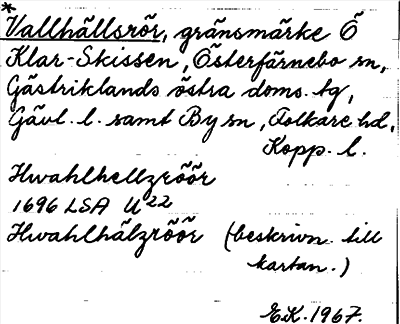 *
Vallhällsrör, gränsmärke Ö
Klar-Skissen, Österfärnebo sn,
Gästriklands östra doms. tg,
Gävl. l. samt By sn, Folkare hd,
Kopp. l.
Hwahlhellzröör
1696 LSA U22
Hwahlhälzröör (beskrivn. till
kartan.)
E.K. 1967.